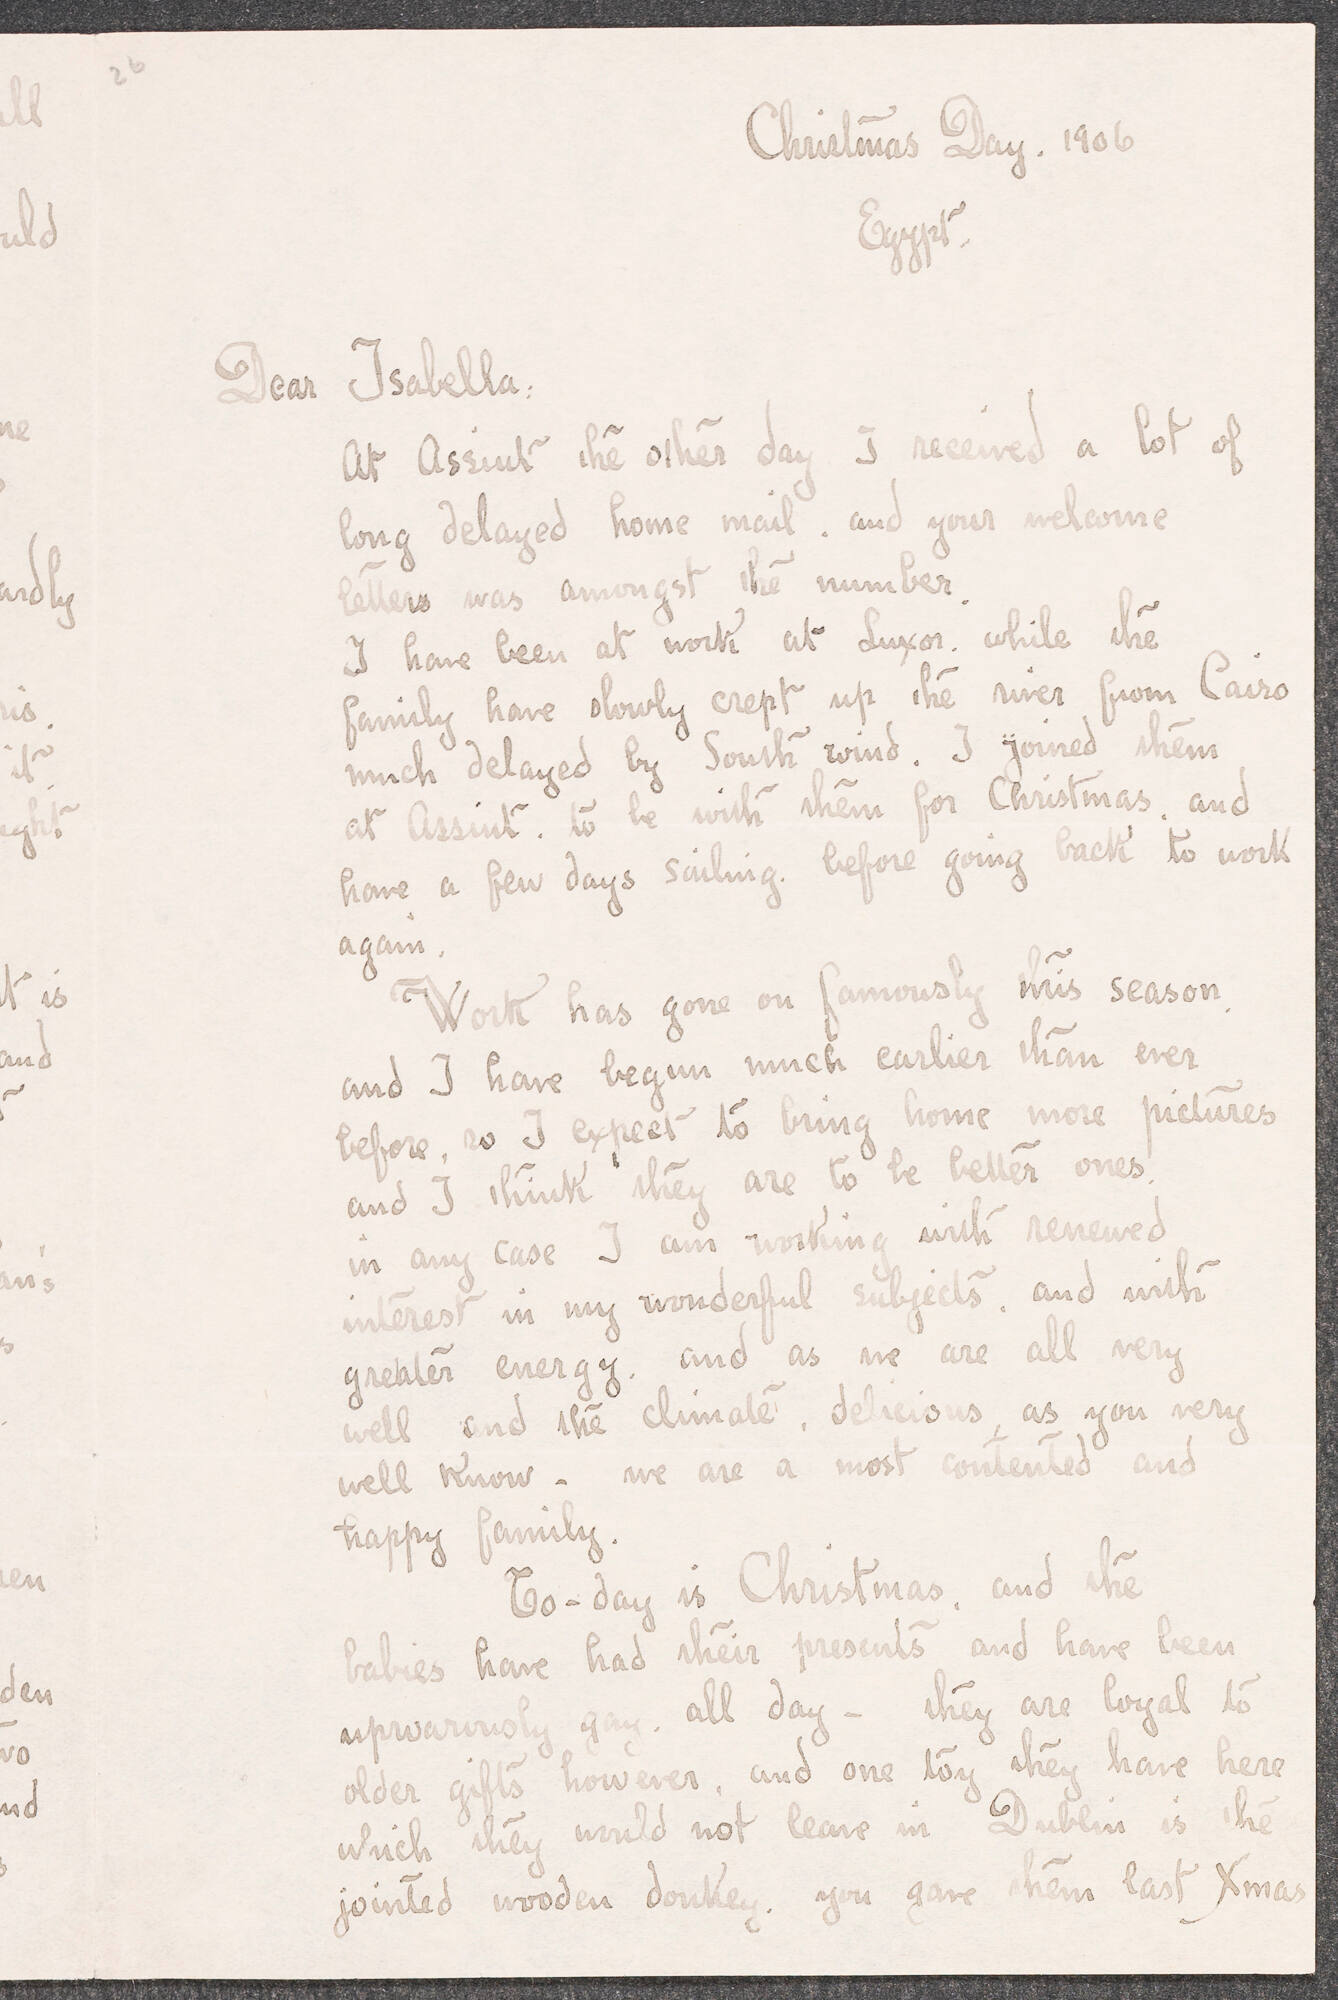 26
Christmas Day. 1906
Egypt.
Dear Isabella:
At Assiut the other day I received a lot of
long delayed home mail. and your welcome
letters was amongst the number.
I have been at work at Luxor. while the
family have slowly crept up the river from Cairo
much delayed by South wind. I joined them
at Assiut. to be with them for Christmas. and
have a few days sailing. before going back to work
again.
Work has gone on famously this season.
and I have begun much earlier than ever
before, so I expect to bring home more pictures
and I think they are to be better ones.
in any case I am working with renewed
interest in my wonderful subjects. and with
greater energy. and as we are all very
well and the climate, delicious, as you very
well know - we are a most contented and
happy family.
To-day is Christmas. and the
babies have had their presents and have been
uproariously gay. all day - they are loyal to
older gifts however, and one toy they have here
which they would not leave in Dublin is the
jointed wooden donkey. you gave them last Xmas